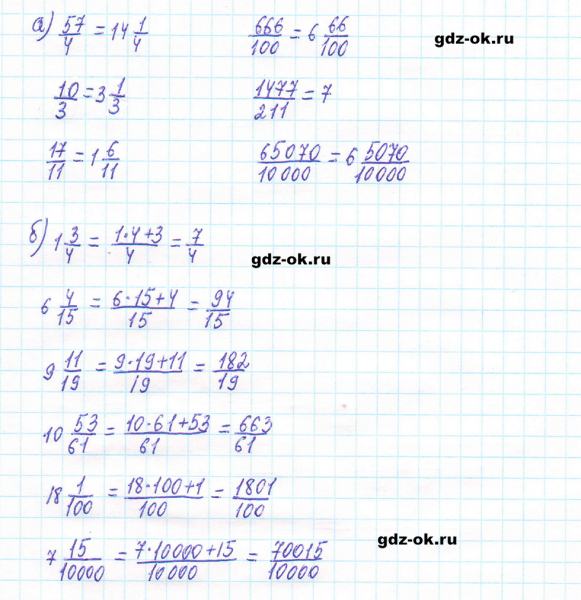 а) 57/4 = 14 1/4    666/100 = 6 66/100
gdz-ok.ru
10/3 = 3 1/3    1477/211 = 7
17/11 = 1 6/11    65070/10000 = 6 5070/10000
б) 1 3/4 = 1·4+3/4 = 7/4
gdz-ok.ru
6 4/15 = 6·15+4/15 = 94/15
9 11/19 = 9·19+11/19 = 182/19
10 53/61 = 10·61+53/61 = 663/61
18 1/100 = 18·100+1/100 = 1801/100
gdz-ok.ru
7 15/10000 = 7·10000+15/10000 = 70015/10000